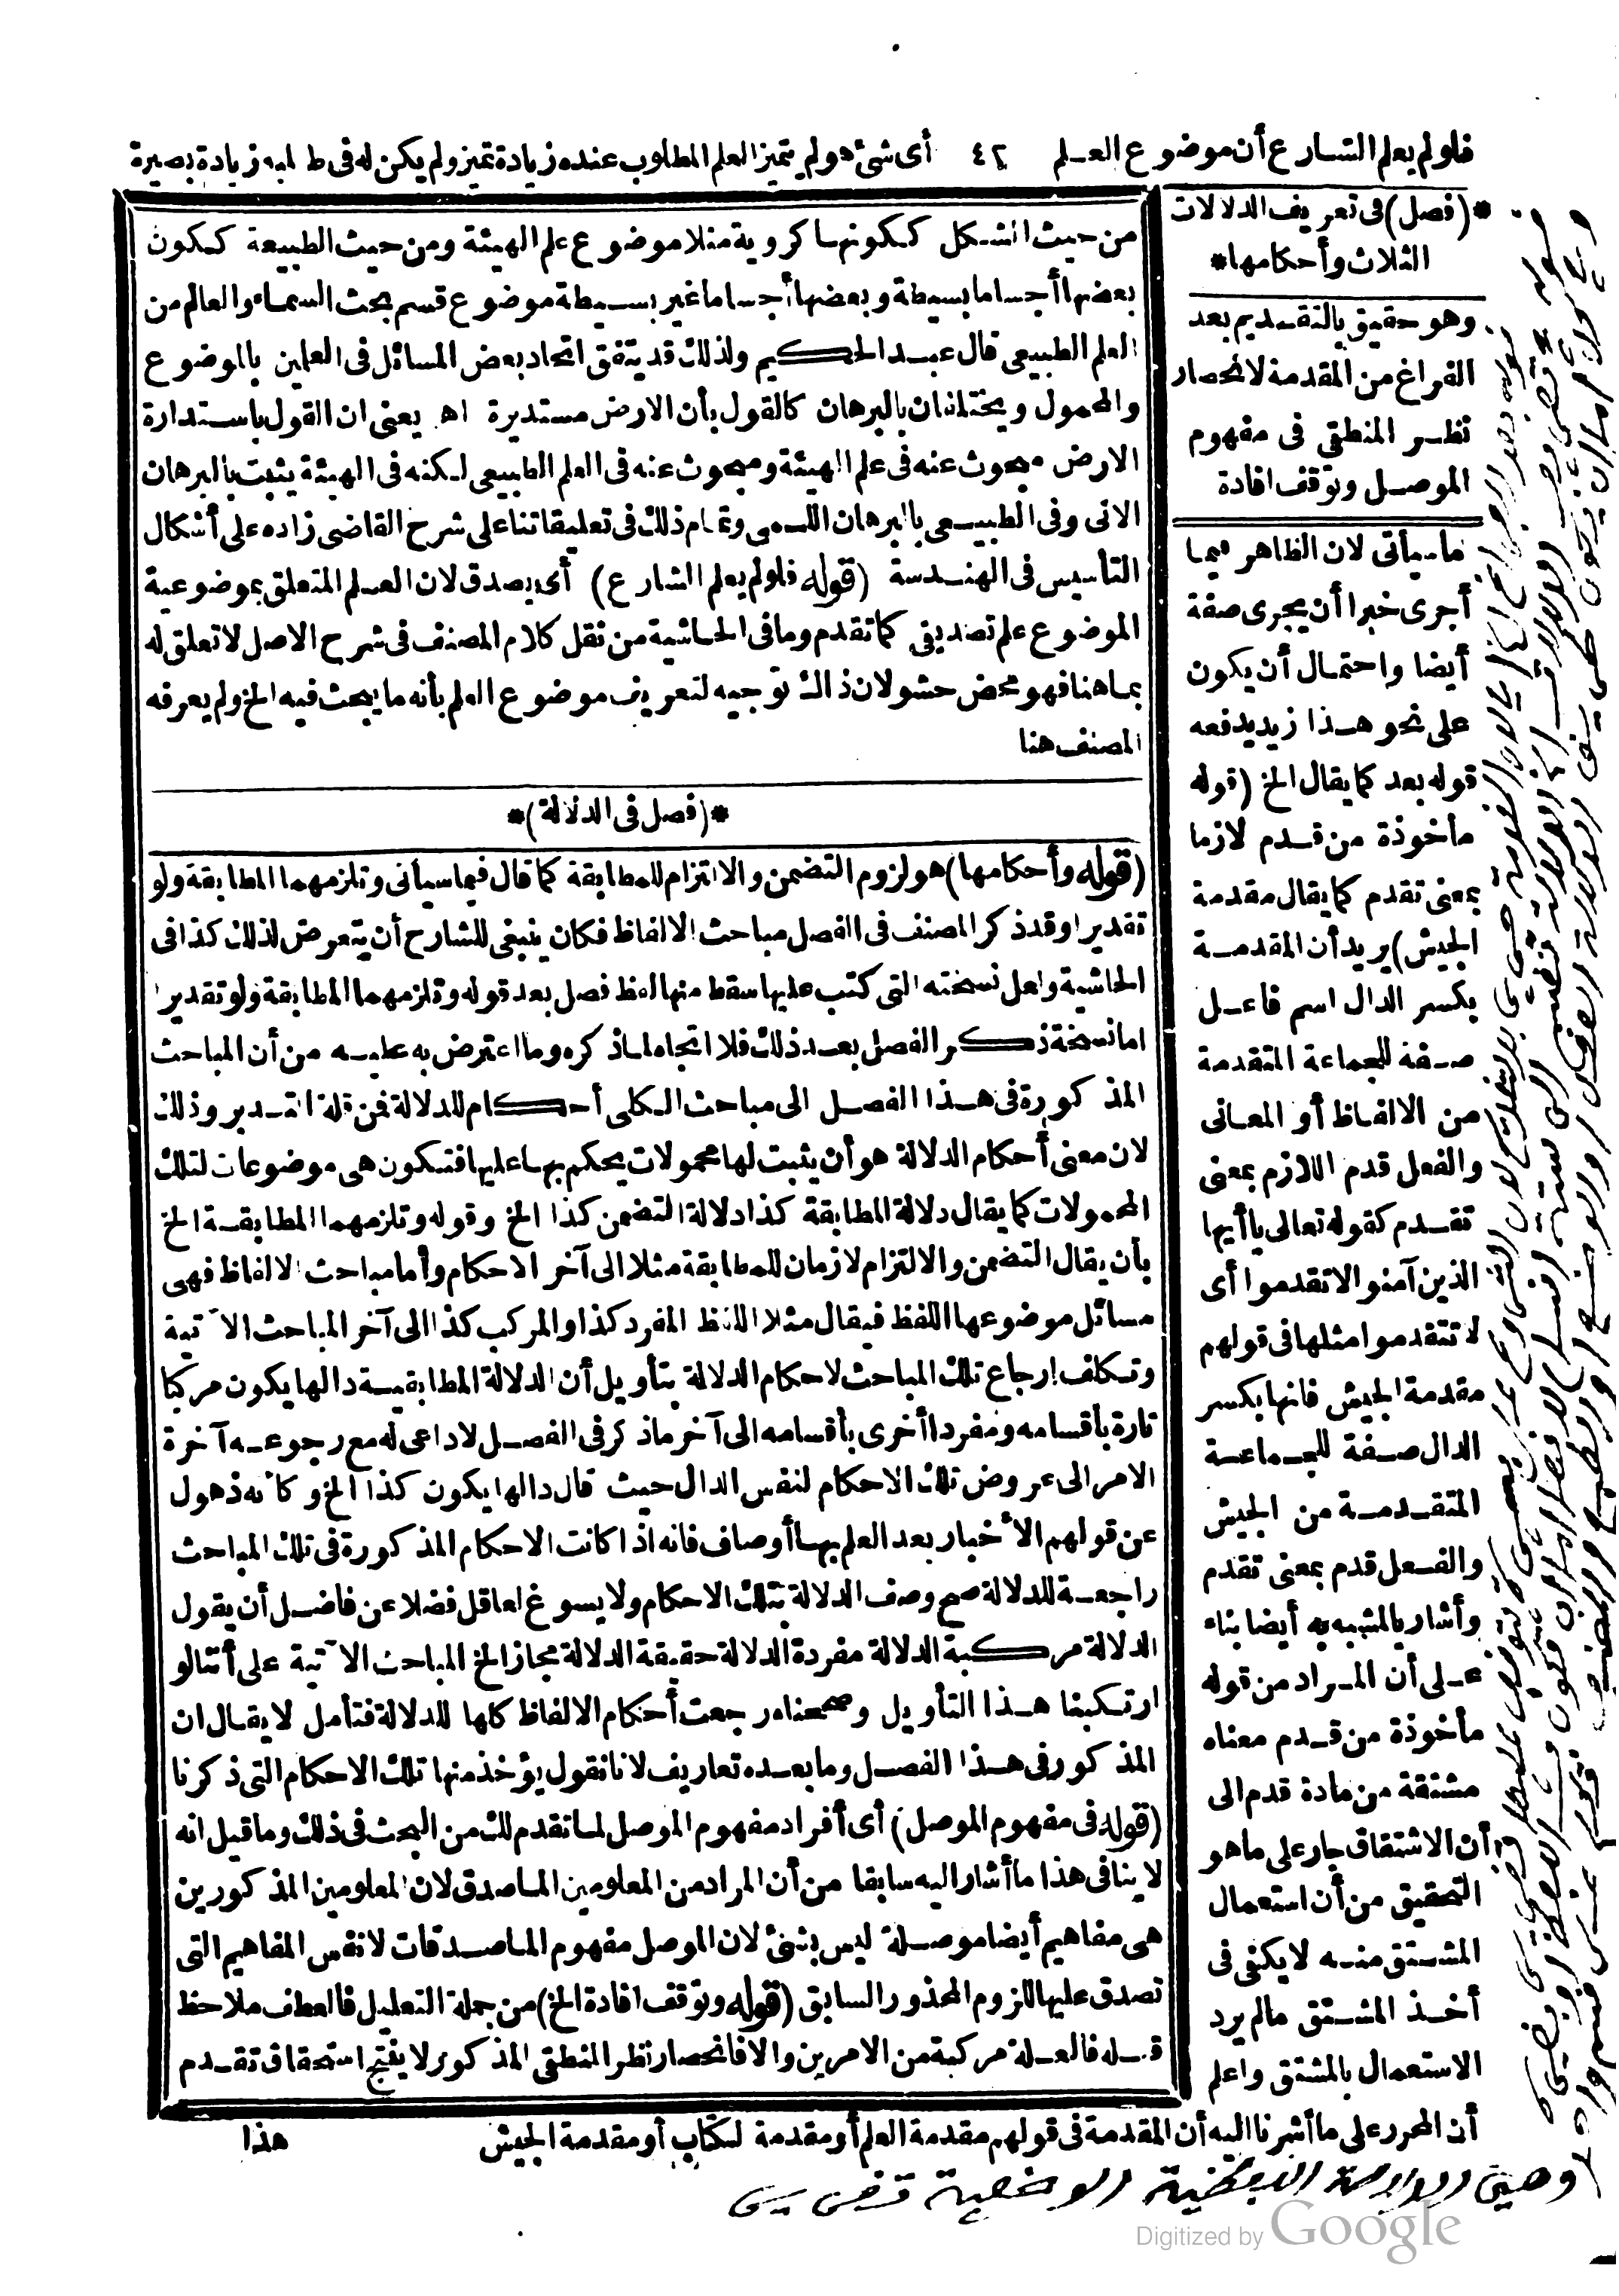 فلو لم يعلم الشارع أن موضوع العلم ٤٢ أى شئ هو لم يتميز العلم المطلوب عنده زيادة تميز ولم يكن له فى طلبه زيادة بصيرة
من حيث الشكل ككونها كروية مثلا موضوع علم الهيئة ومن حيث الطبيعة ككون
بعضها أجساما بسيطة وبعضها أجساما غير بسيطة موضوع قسم بحث السماء والعالم من
العلم الطبيعى قال عبد الحكيم ولذلك قد يتفق اتحاد بعض المسائل فى العلمين بالموضوع
والمحمول ويختلفان بالبرهان كالقول بأن الارض مستديرة اه يعنى ان القول باستدارة
الارض مبحوث عنه فى علم الهيئة ومبحوث عنه فى العلم الطبيعى لكنه فى الهيئة يثبت بالبرهان
الانى وفى الطبيعى بالبرهان اللمى وتمام ذلك فى تعليقاتنا على شرح القاضى زاده على أشكال
التأسيس فى الهندسة (قوله فلو لم يعلم الشارع) أى يصدق لان العلم المتعلق بموضوعية
الموضوع علم تصديقى كما تقدم وما فى الحاشية من نقل كلام المصنف فى شرح الاصل لا تعلق له
بما هنا فهو محض حشو لان ذالك توجيه لتعريف موضوع العلم بأنه ما يبحث فيه الخ ولم يعرفه
المصنف هنا
*(فصل فى الدلالة)*
(قوله وأحكامها) هو لزوم التضمن والالتزام للمطابقة كما قال فيما سيأتى وتلزمهما المطابقة ولو
تقديرا وقد ذكر المصنف فى الفصل مباحث الالفاظ فكان ينبغى للشارح أن يتعرض لذلك كذا فى
الحاشية ولعل نسخته التى كتب عليها سقط منها لفظ فصل بعد قوله وتلزمهما المطابقة ولو تقديرا
اما نسخة ذكر الفصل بعد ذلك فلا اتجاه لما ذكره وما اعترض به عليه من أن المباحث
المذكورة فى هذا الفصل الى مباحث الكلى أحكام للدلالة فمن قلة التدبر وذلك
لان معنى أحكام الدلالة هو أن يثبت لها محمولات يحكم بها عليها فتكون هى موضوعات لتلك
المحمولات كما يقال دلالة المطابقة كذا دلالة التضمن كذا الخ وقوله وتلزمهما المطابقة الخ
بأن يقال التضمن والالتزام لازمان للمطابقة مثلا الى آخر الاحكام وأما مباحث الالفاظ فهى
مسائل موضوعها اللفظ فيقال مثلا اللفظ المفرد كذا والمركب كذا الى آخر المباحث الآتية
وتكلف ارجاع تلك المباحث لاحكام الدلالة بتأويل أن الدلالة المطابقية دالها يكون مركبا
تارة بأقسامه ومفردا أخرى بأقسامه الى آخر ما ذكر فى الفصل لا داعى له مع رجوعه آخرة
الامر الى عروض تلك الاحكام لنفس الدال حيث قال دالها يكون كذا الخ وكأنه ذهول
عن قولهم الأخبار بعد العلم بها أوصاف فانه اذا كانت الاحكام المذكورة فى تلك المباحث
راجعة للدلالة صح وصف الدلالة بتلك الاحكام ولا يسوغ لعاقل فضلا عن فاضل أن يقول
الدلالة مركبة الدلالة مفردة الدلالة حقيقة الدلالة مجاز الخ المباحث الآتية على أننا لو
ارتكبنا هذا التأويل وصححناه رجعت أحكام الالفاظ كلها للدلالة فتأمل لا يقال ان
المذكور فى هذا الفصل وما بعده تعاريف لانا نقول يؤخذ منها تلك الاحكام التى ذكرنا
(قوله فى مفهوم الموصل) أى أفراد مفهوم الموصل لما تقدم لك من البحث فى ذلك وما قيل انه
لا ينافى هذا ما أشار اليه سابقا من أن المراد من المعلومين الماصدق لان المعلومين المذكورين
هى مفاهيم أيضا موصلة ليس بشئ لان الموصل مفهوم الماصدقات لا نفس المفاهيم التى
تصدق عليها للزوم المحذور السابق (قوله وتوقف افادة الخ) من جملة التعليل فالعطف ملاحظ
قبله فالعلة مركبة من الامرين والا فانحصار نظر المنطقى المذكور لا ينتج استحقاق تقدم
*(فصل) فى تعريف الدلالات
الثلاث وأحكامها*
وهو حقيق بالتقديم بعد
الفراغ من المقدمة لانحصار
نظر المنطقى فى مفهوم
الموصل وتوقف افادة
ما سيأتى لان الظاهر فيما
أجرى خبرا أن يجرى صفة
أيضا واحتمال أن يكون
على نحو هذا زيد يدفعه
قوله بعد كما يقال الخ (قوله
مأخوذة من قدم لازما
بمعنى تقدم كما يقال مقدمة
الجيش) يريد أن المقدمة
بكسر الدال اسم فاعل
صفة للجماعة المتقدمة
من الالفاظ أو المعانى
والفعل قدم اللازم بمعنى
تقدم كقوله تعالى يا أيها
الذين آمنوا لا تقدموا أى
لا تتقدموا مثلها فى قولهم
مقدمة الجيش فانها بكسر
الدال صفة للجماعة
المتقدمة من الجيش
والفعل قدم بمعنى تقدم
وأشار بالمشبه به أيضا بناء
على أن المراد من قوله
مأخوذة من قدم معناه
مشتقة من مادة قدم الى
أن الاشتقاق جار على ما هو
التحقيق من أن استعمال
المشتق منه لا يكفى فى
أخذ المشتق ما لم يرد
الاستعمال بالمشتق واعلم
أن المحرر على ما أشرنا اليه أن المقدمة فى قولهم مقدمة العلم أو مقدمة لكتاب أو مقدمة الجيش هذا
Digitized by Google